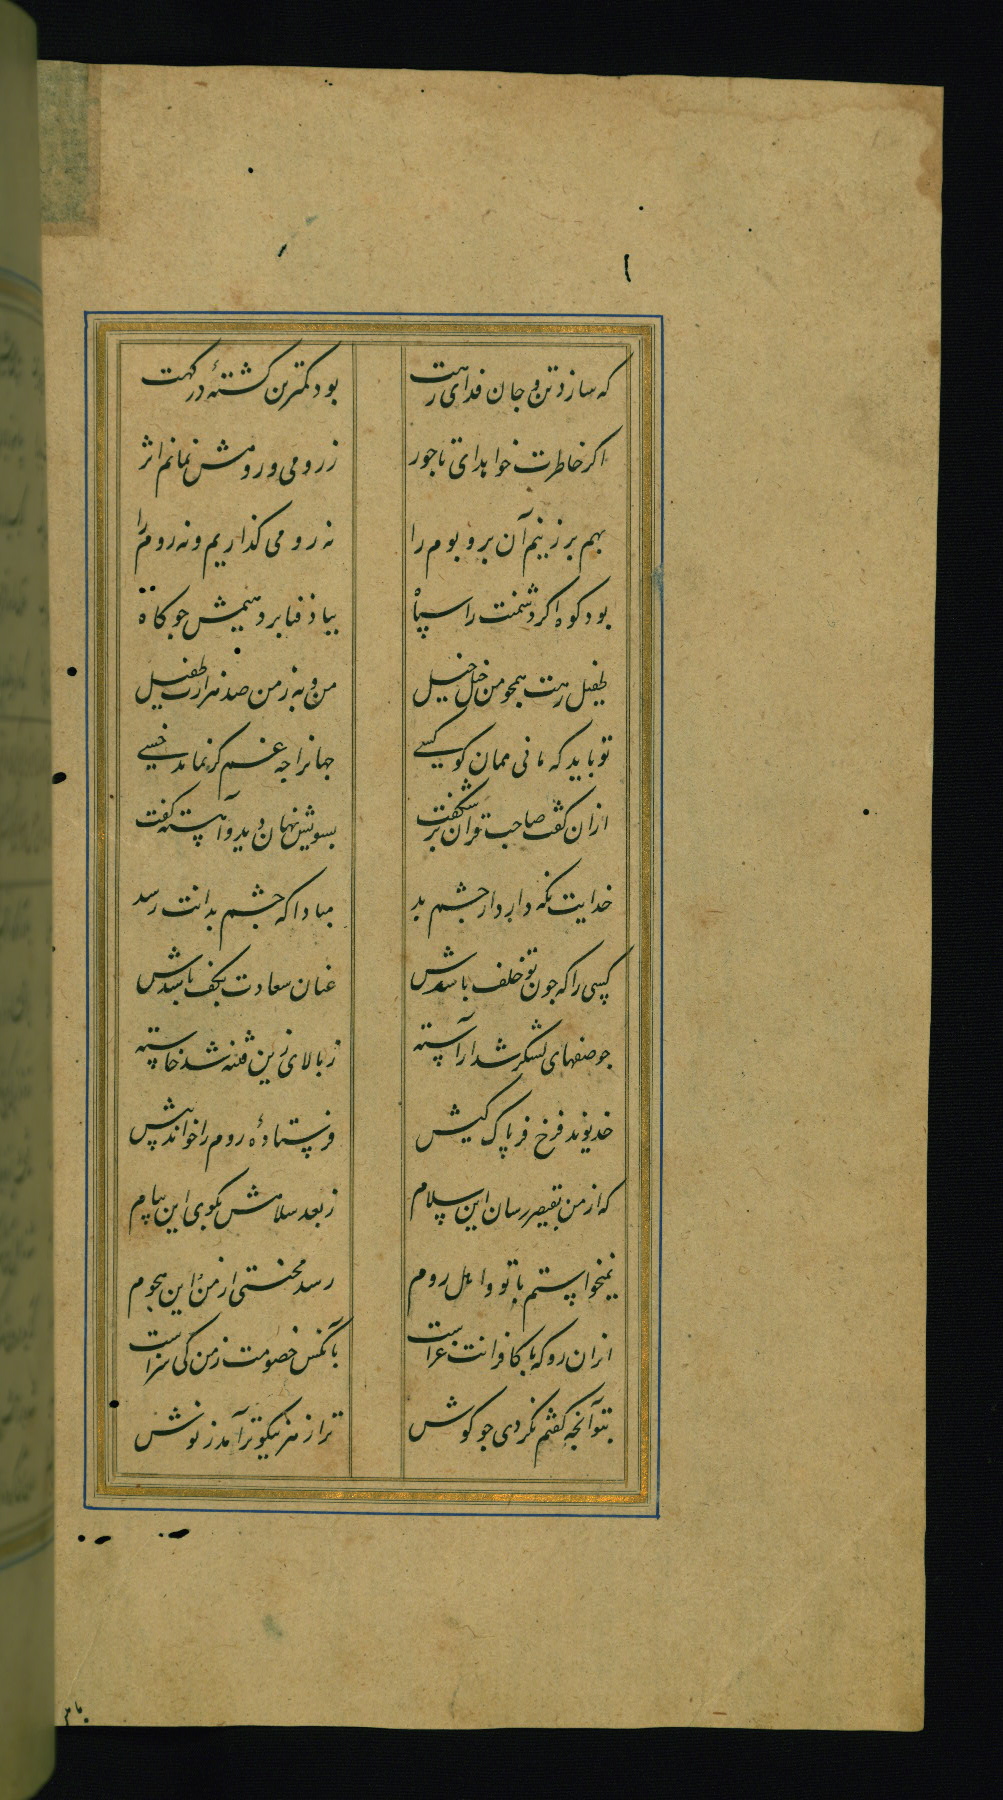 که سازد تن و جان فدای رهت بود کمترین کشتهٔ درکهت
اکر خاطرت خواهد ای تاجور ز رومی و رومش نمانم اثر
بهم بر زنیم آن بر و بوم را نه رومی کذاریم و نه روم را
بود کوه اکر دشمنت را سپاه بباد فنا بر دهیمش جو کاه
طفیل رهت همجو من خیل خیل من و به ز من صد هزارت طفیل
تو باید که مانی ممان کو کسی جهانرا جه غم کر نماند خسی
ازان کفت صاحب قران شکفت بسویش نهان دید و آهسته کفت
خدایت نکه دارد از جشم بد مبادا که جشم بدانت رسد
کسی را که جون تو خلف باشدش عنان سعادت بکف باشدش
جو صفهای لشکر شد اراسته ز بالای زین فتنه شد خاسته
خدیوند فرخ فر پاک کیش فرستادهٔ روم را خواند پیش
که از من بقیصر رسان این سلام ز بعد سلامش بکوی این پیام
نمیخواستم با تو و اهل روم رسد محنتی از من این هجوم
ازان رو که با کافرانت غزاست بآنکس خصومت ز من کی سزاست
بتو آنجه کفتم نکردی جو کوش ترا زهر نیکوتر آمد ز نوش